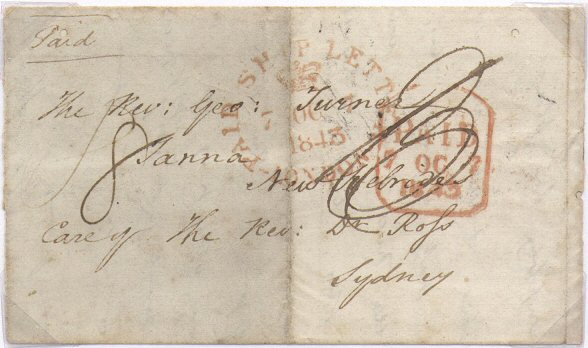 Paid
The Rev: Geo: Turner
Tanna
New Hebrides
Care of The Rev: Dr Ross
Sydney
8
PAID SHIP LETTER
OC
1843
LONDON
PAID
17 OC 17
1843